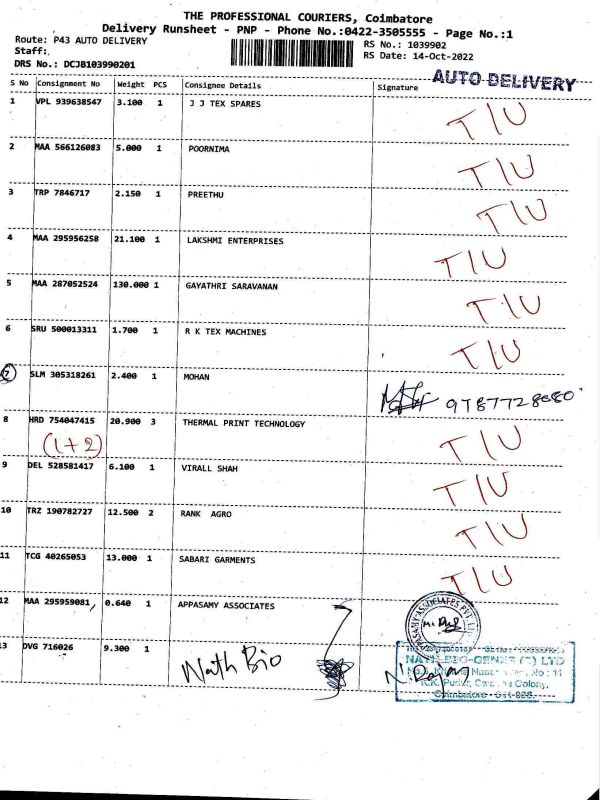 THE PROFESSIONAL COURIERS, Coimbatore
Delivery Runsheet - PNP - Phone No.:0422-3505555 - Page No.:1
Route: P43 AUTO DELIVERY
RS No.: 1039902
Staff:
RS Date: 14-Oct-2022
DRS No.: DCJB103990201
AUTO DELIVERY
S No Consignment No Weight PCS Consignee Details Signature
1 VPL 939638547 3.100 1 J J TEX SPARES T/U
2 MAA 566126083 5.000 1 POORNIMA T/U
3 TRP 7846717 2.150 1 PREETHU T/U
4 MAA 295956258 21.100 1 LAKSHMI ENTERPRISES T/U
5 MAA 287052524 130.000 1 GAYATHRI SARAVANAN T/U
6 SRU 500013311 1.700 1 R K TEX MACHINES T/U
7 SLM 305318261 2.400 1 MOHAN 9787728080
8 HRD 754047415 20.900 3 THERMAL PRINT TECHNOLOGY T/U
(1+2)
9 DEL 528581417 6.100 1 VIRALL SHAH T/U
10 TRZ 190782727 12.500 2 RANK AGRO T/U
11 TCG 40265053 13.000 1 SABARI GARMENTS T/U
12 MAA 295959081, 0.640 1 APPASAMY ASSOCIATES
ASSOCIATES PVT. LT
13 DVG 716026 9.300 1 Nath Bio
NATH BIO-GENES (I) LTD
Colony,
Coimbatore